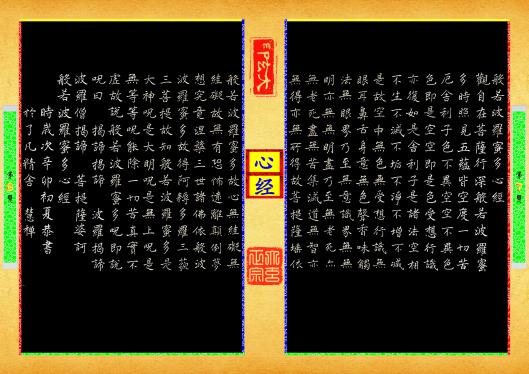 般若波羅蜜多心經
觀自在菩薩行深般若波羅蜜
多時照見五蘊皆空度一切苦
厄舍利子色不異空空不異色
色即是空空即是色受想行識
亦復如是舍利子是諸法空相
不生不滅不垢不淨不增不減
是故空中無色無受想行識無
眼耳鼻舌身意無色聲香味觸
法無眼界乃至無意識界無無
明亦無無明盡乃至無老死亦
無老死盡無苦集滅道無智亦
無得亦無所得故菩提薩埵依
心经
般若波羅蜜多故心無罣礙無
罣礙故無有恐怖遠離顛倒夢
想究竟涅槃三世諸佛依般若
波羅蜜多故得阿耨多羅三藐
三菩提故知般若波羅蜜多是
大神呪是大明呪是無上呪是
無等等呪能除一切苦真實不
虛故說般若波羅蜜多呪即說
呪曰 揭諦揭諦 波羅揭諦
波羅僧揭諦 菩提薩婆訶
般若波羅蜜多心經
時歲次辛卯初夏恭書
於了凡精舍 慧禪